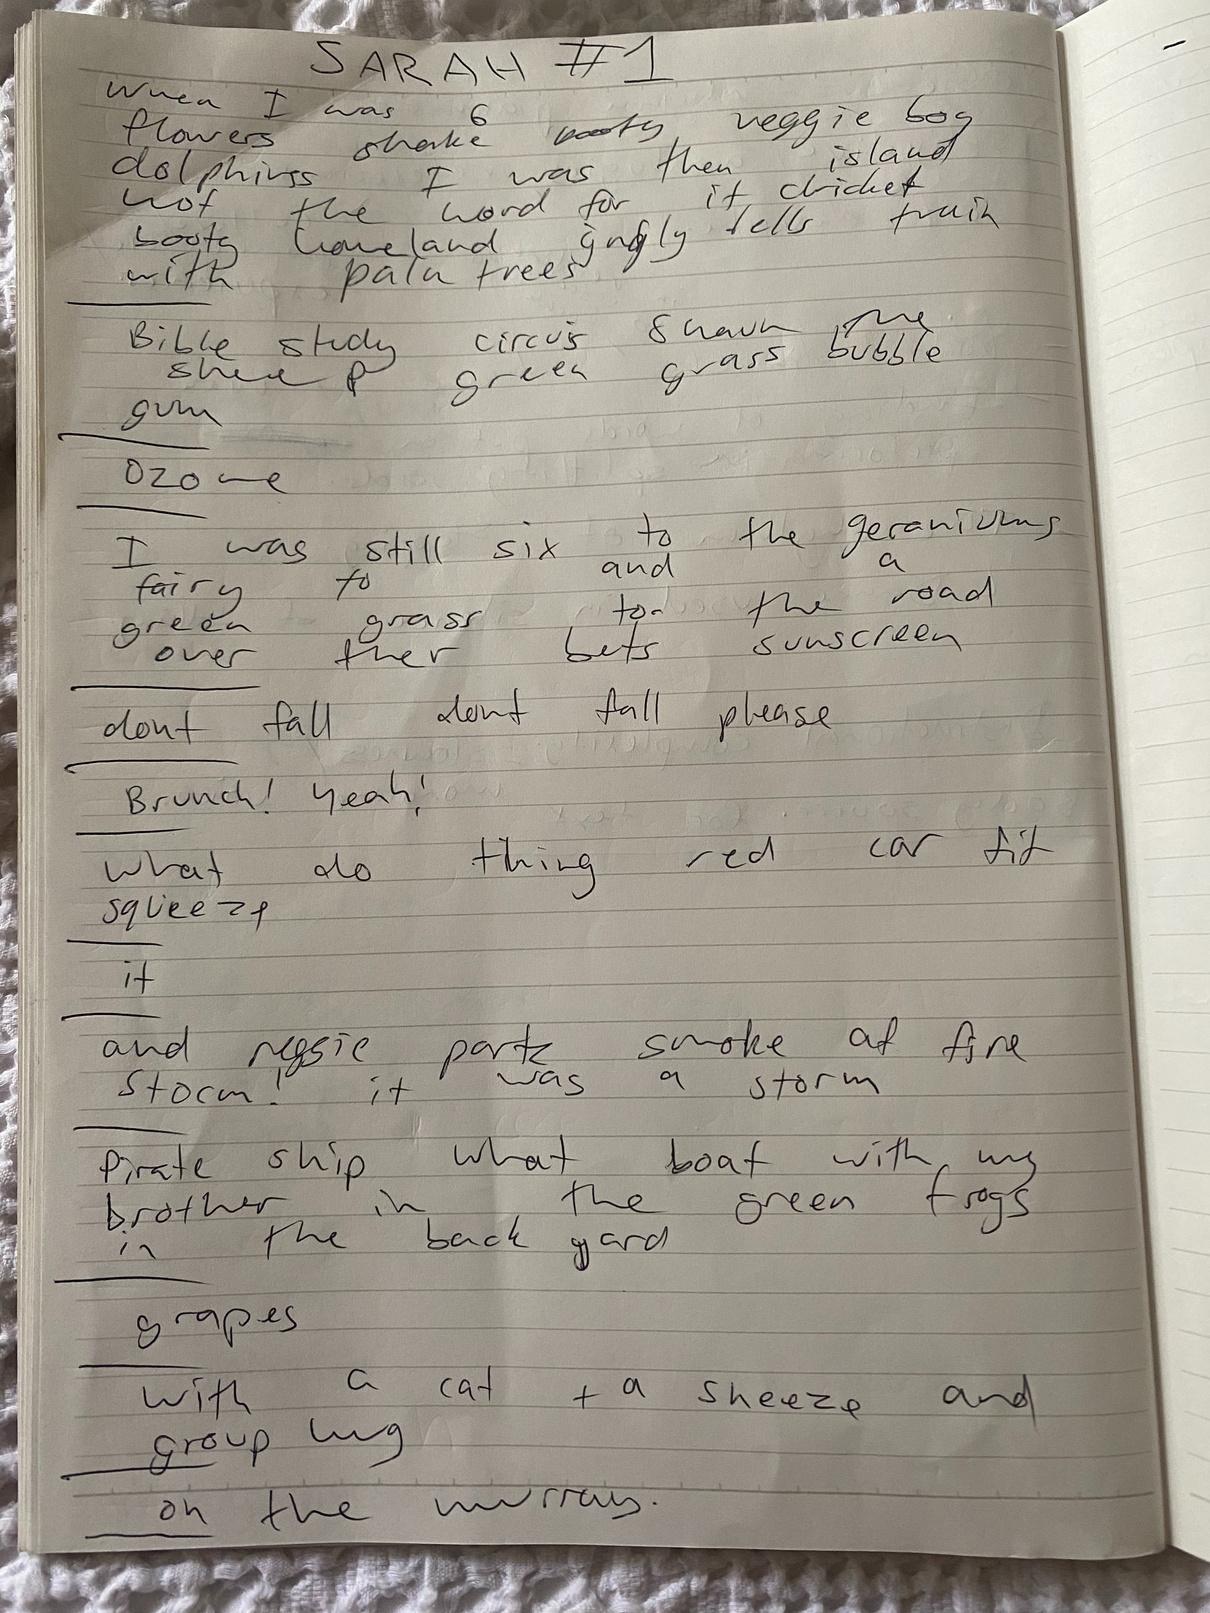 SARAH #1
When I was 6
flowers shake booty veggie bog
dolphins I was then island
not the word for it cricket
booty homeland jingly tells train
with palm trees
Bible study circus Shaun the
sheep green grass bubble
gum
Ozone
I was still six to the geraniums
fairy to and a
green grass to the road
over ther bets sunscreen
dont fall dont fall please
Brunch! Yeah!
What do thing red car fit
squeeze
it
and park smoke at fire
storm! it was a storm
Pirate ship what boat with my
brother in the green frogs
in the back yard
grapes
with a cat + a sneeze and
group hug
on the murray.